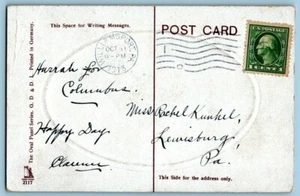 This Space for Writing Messages.
POST CARD.
OCT 11
Hurrah for
Columbus.
Happy Day
Clarence
Miss Rachel Kunkel,
Lewisburg,
Pa.
The Oval Panel Series. G. D. & D. L. Printed in Germany.
2117
This Side for the address only.